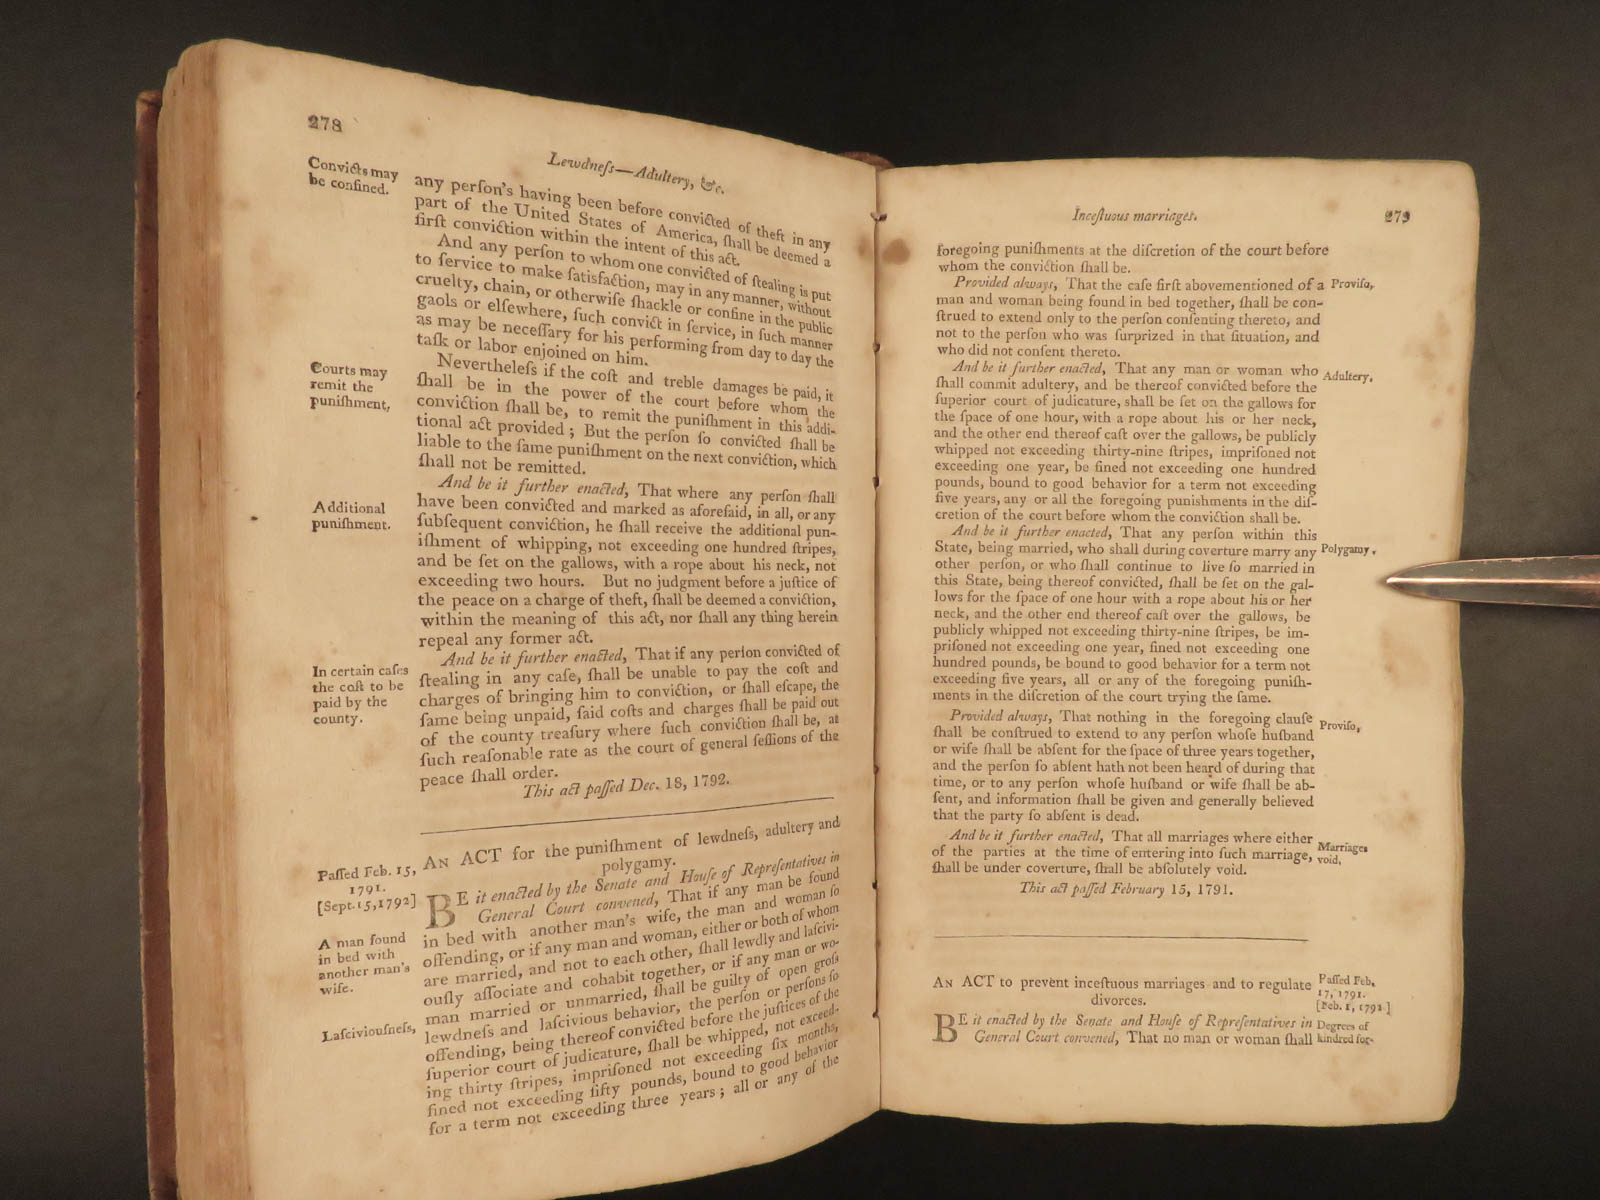 278
Lewdneſs—Adultery, &c.
Convicts may
be confined.
any perſon's having been before convicted of theft in any
part of the United States of America, ſhall be deemed a
firſt conviction within the intent of this act.
And any perſon to whom one convicted of ſtealing is put
to ſervice to make ſatisfaction, may in any manner, without
cruelty, chain, or otherwiſe ſhackle or confine in the public
gaols or elſewhere, ſuch convict in ſervice, in ſuch manner
as may be neceſſary for his performing from day to day the
taſk or labor enjoined on him.
Courts may
remit the
puniſhment,
Nevertheleſs if the coſt and treble damages be paid, it
ſhall be in the power of the court before whom the
conviction ſhall be, to remit the puniſhment in this addi-
tional act provided; But the perſon ſo convicted ſhall be
liable to the ſame puniſhment on the next conviction, which
ſhall not be remitted.
Additional
puniſhment.
And be it further enacted, That where any perſon ſhall
have been convicted and marked as aforeſaid, in all, or any
ſubſequent conviction, he ſhall receive the additional pun-
iſhment of whipping, not exceeding one hundred ſtripes,
and be ſet on the gallows, with a rope about his neck, not
exceeding two hours. But no judgment before a juſtice of
the peace on a charge of theft, ſhall be deemed a conviction,
within the meaning of this act, nor ſhall any thing herein
repeal any former act.
In certain caſes
the coſt to be
paid by the
county.
And be it further enacted, That if any perſon convicted of
ſtealing in any caſe, ſhall be unable to pay the coſt and
charges of bringing him to conviction, or ſhall eſcape, the
ſame being unpaid, ſaid coſts and charges ſhall be paid out
of the county treaſury where ſuch conviction ſhall be, at
ſuch reaſonable rate as the court of general ſeſſions of the
peace ſhall order.
This act paſſed Dec. 18, 1792.
Paſſed Feb. 15,
1791.
[Sept. 15, 1792]
AN ACT for the puniſhment of lewdneſs, adultery and
polygamy.
A man found
in bed with
another man's
wife.
BE it enacted by the Senate and Houſe of Repreſentatives in
General Court convened, That if any man be found
in bed with another man's wife, the man and woman ſo
offending, or if any man and woman, either or both of whom
are married, and not to each other, ſhall lewdly and laſcivi-
ouſly aſſociate and cohabit together, or if any man or wo-
man married or unmarried, ſhall be guilty of open groſs
Laſciviouſneſs,
lewdneſs and laſcivious behavior, the perſon or perſons ſo
offending, being thereof convicted before the juſtices of the
ſuperior court of judicature, ſhall be whipped, not exceed-
ing thirty ſtripes, impriſoned not exceeding ſix months,
fined not exceeding fifty pounds, bound to good behavior
for a term not exceeding three years; all or any of the
Inceſtuous marriages.
279
foregoing puniſhments at the diſcretion of the court before
whom the conviction ſhall be.
Provided always, That the caſe firſt abovementioned of a
Proviſo,
man and woman being found in bed together, ſhall be con-
ſtrued to extend only to the perſon conſenting thereto, and
not to the perſon who was ſurprized in that ſituation, and
who did not conſent thereto.
And be it further enacted, That any man or woman who
Adultery,
ſhall commit adultery, and be thereof convicted before the
ſuperior court of judicature, ſhall be ſet on the gallows for
the ſpace of one hour, with a rope about his or her neck,
and the other end thereof caſt over the gallows, be publicly
whipped not exceeding thirty-nine ſtripes, impriſoned not
exceeding one year, be fined not exceeding one hundred
pounds, bound to good behavior for a term not exceeding
five years, any or all the foregoing punishments in the diſ-
cretion of the court before whom the conviction ſhall be.
And be it further enacted, That any perſon within this
State, being married, who ſhall during coverture marry any
Polygamy,
other perſon, or who ſhall continue to live ſo married in
this State, being thereof convicted, ſhall be ſet on the gal-
lows for the ſpace of one hour with a rope about his or her
neck, and the other end thereof caſt over the gallows, be
publicly whipped not exceeding thirty-nine ſtripes, be im-
priſoned not exceeding one year, fined not exceeding one
hundred pounds, be bound to good behavior for a term not
exceeding five years, all or any of the foregoing puniſh-
ments in the diſcretion of the court trying the ſame.
Provided always, That nothing in the foregoing clauſe
Proviſo,
ſhall be conſtrued to extend to any perſon whoſe huſband
or wife ſhall be abſent for the ſpace of three years together,
and the perſon ſo abſent hath not been heard of during that
time, or to any perſon whoſe huſband or wife ſhall be ab-
ſent, and information ſhall be given and generally believed
that the party ſo abſent is dead.
And be it further enacted, That all marriages where either
of the parties at the time of entering into ſuch marriage,
ſhall be under coverture, ſhall be abſolutely void.
Marriages
void,
This act paſſed February 15, 1791.
AN ACT to prevent inceſtuous marriages and to regulate
divorces.
Paſſed Feb,
17, 1791.
[Feb. 1, 1792]
BE it enacted by the Senate and Houſe of Repreſentatives in
General Court convened, That no man or woman ſhall
Degrees of
kindred for-